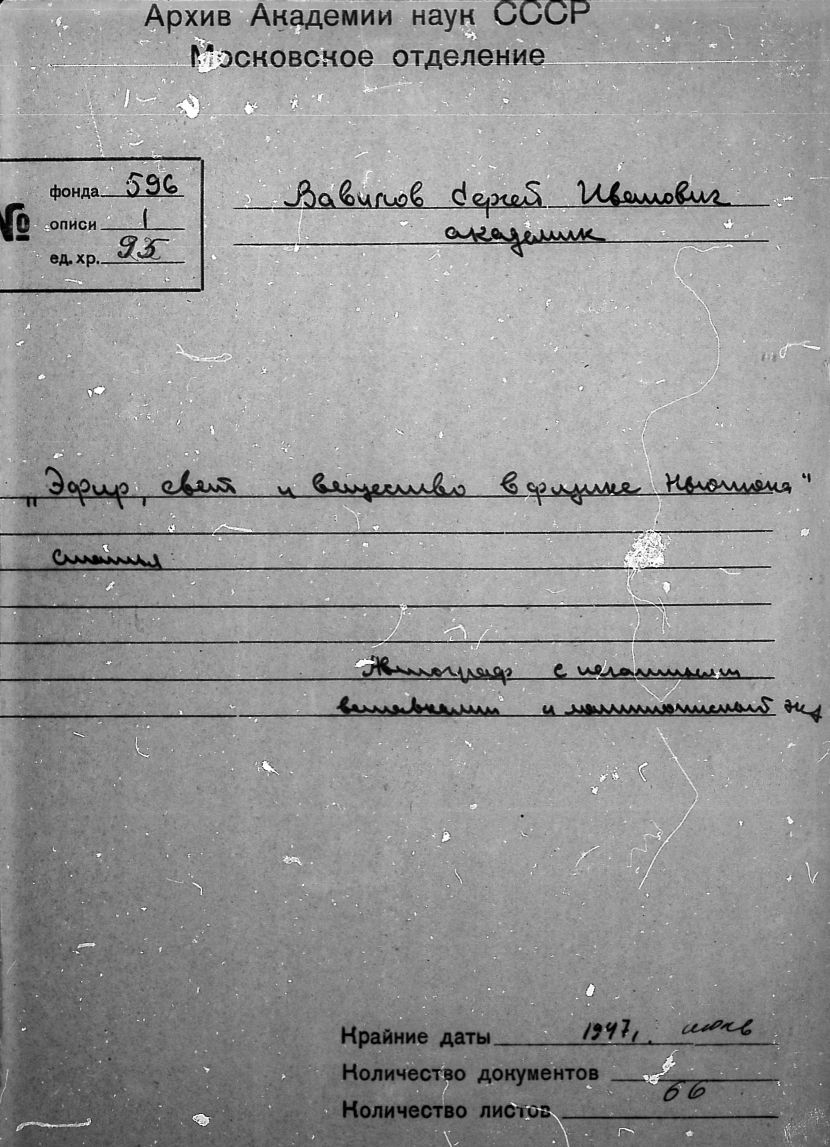 Архив Академии наук СССР
Московское отделение
№
фонда 596
описи 1
ед. хр. 95
Вавилов Сергей Иванович
академик
„Эфир, свет и вещество в физике Ньютона"
статья
Автограф с печатными
вставками и машинописный экз
Крайние даты 1947, июль
Количество документов
Количество листов 66